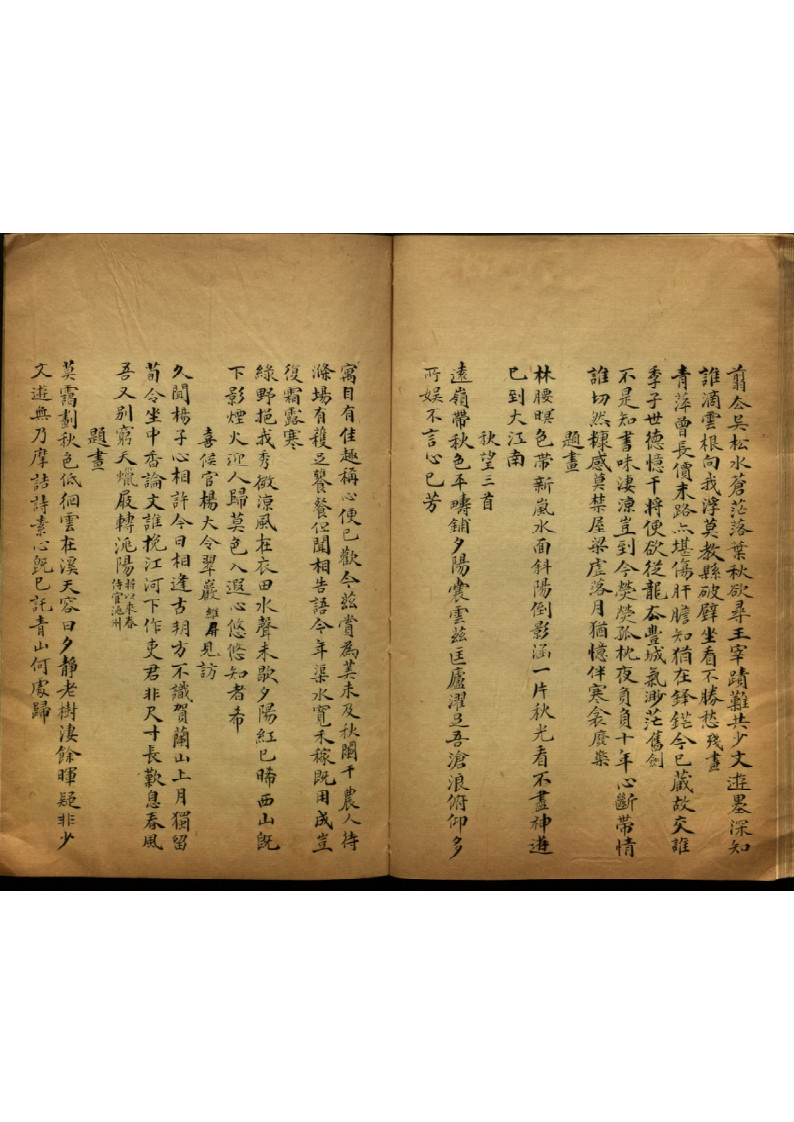 翦岺吳松水蒼茫落葉秋欲尋王宰蹟難共少文遊墨深知
誰滴雲根向我浮莫教縣破壁坐看不勝愁殘畫
青萍曾長價末路亦堪傷肝膽知猶在鋒鋩今已藏故交誰
季子世德憶干将便欲従龍去豐城氣渺茫舊劍
不是知書味淒涼豈到今熒熒孤枕夜負負十年心斷帶情
誰切然穅感莫禁屋梁虛落月猶憶伴寒衾廢檠
題畫
林腰暝色帶新嵐水面斜陽倒影涵一片秋光看不盡神遊
已到大江南
秋望三首
遠嶺帶秋色平疇鋪夕陽裳雲玆匡廬濯足吾滄浪俯仰多
所娱不言心已芳
寓目有佳趣稱心便已歡今玆賞為美未及秋闌干農人待
滌場有穫足饔餐但聞相告語今年渠水寬禾稼既用成豈
復霜露寒
綠野挹我秀微涼風在衣田水聲未歇夕陽紅已晞西山既
下影煙火迎人歸莫色入遐心悠悠知者希
喜侯官楊大令翠巖維屏見訪
久聞楊子心相許今日相逢古朔方不識賀蘭山上月獨留
荀令坐中香論文誰挽江河下作吏君非尺寸長歎息春風
吾又别窮天蠟屐轉洮陽將以来春侍官洮州
題畫
莫靄劃秋色低徊雲在溪天容日夕靜老樹淒餘暉疑非少
文遊無乃摩詰詩素心既已託青山何處歸